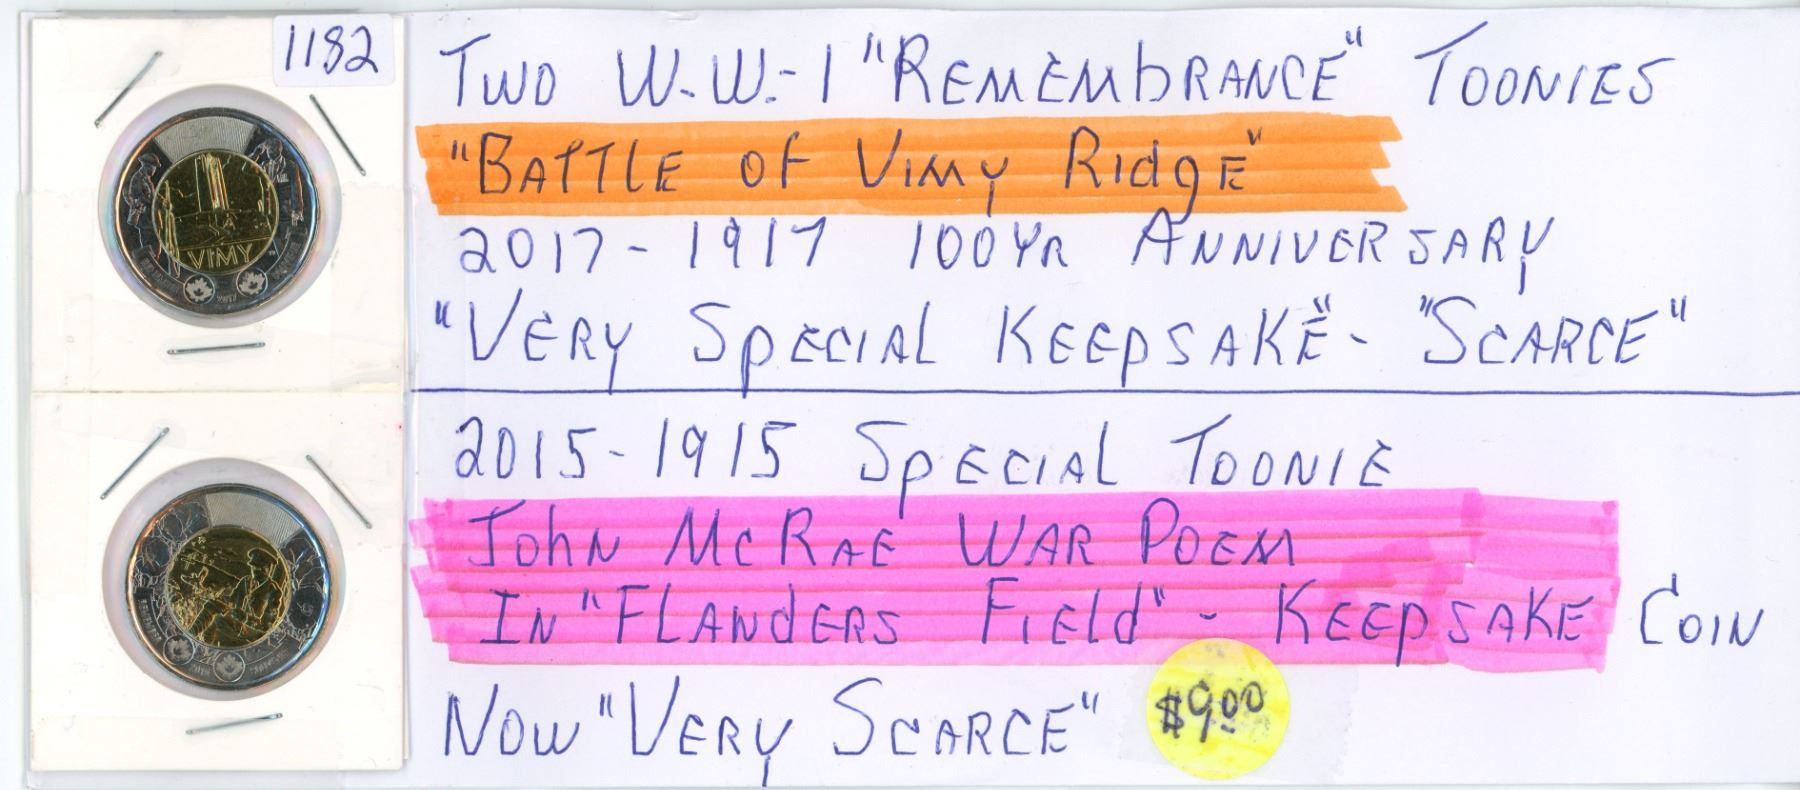 1182
Two W.W.-1 "REMEMbRANCE" TOONIES
"BATTLE OF VIMY RIdgE"
2017-1917 100YR ANNIVERSARY
"VERY SpECIAL KEEpSAKE"- "SCARCE"
2015-1915 SpECIAL TOONIE
John McRAE WAR POEM
In "FLANdERS FIEld" - KEEpSAKE COIN
NOW "VERY SCARCE"
$9.00
VIMY
2017